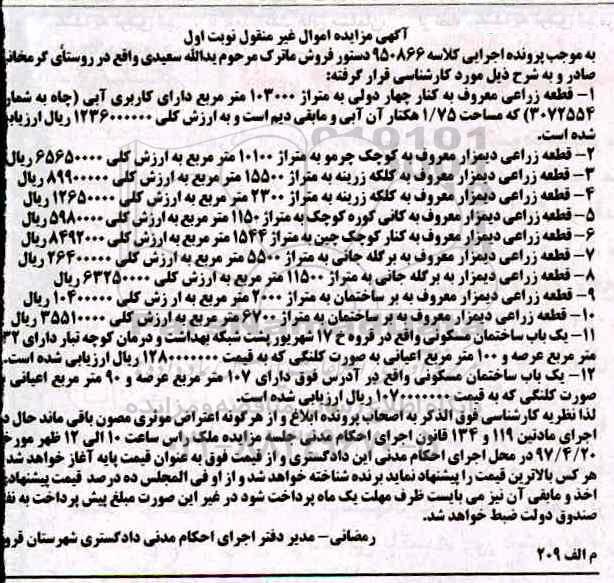 آگهی مزایده اموال غیر منقول نوبت اول
به موجب پرونده اجرایی کلاسه ۹۵۰۸۶۶ دستور فروش ماترک مرحوم یدالله سعیدی واقع در روستای گرمخانی
صادر و به شرح ذیل مورد کارشناسی قرار گرفته:
۱- قطعه زراعی معروف به کنار چهار دولی به متراژ ۱۰۳۰۰۰ متر مربع دارای کاربری آبی (چاه به شمار
۳۰۷۲۵۵۴) که مساحت ۱/۷۵ هکتار آن آبی و مابقی دیم است و به ارزش کلی ۱۲۳۶۰۰۰۰۰۰ ریال ارزیابی
شده است.
۲- قطعه زراعی دیمزار معروف به کوچک چرمو به متراژ ۱۰۱۰۰ متر مربع به ارزش کلی ۶۵۶۵۰۰۰۰ ریال
۳- قطعه زراعی دیمزار معروف به کلکه زرینه به متراژ ۱۵۵۰۰ متر مربع به ارزش کلی ۸۹۹۰۰۰۰۰ ریال
۴- قطعه زراعی دیمزار معروف به کلکه زرینه به متراژ ۲۳۰۰ متر مربع به ارزش کلی ۱۲۶۵۰۰۰۰ ریال
۵- قطعه زراعی دیمزار معروف به کانی کوره کوچک به متراژ ۱۱۵۰ متر مربع به ارزش کلی ۵۹۸۰۰۰۰ ریال
۶- قطعه زراعی دیمزار معروف به کنار کوچک چین به متراژ ۱۵۴۴ متر مربع به ارزش کلی ۸۴۹۲۰۰۰ ریال
۷- قطعه زراعی دیمزار معروف به برگله جانی به متراژ ۵۵۰۰ متر مربع به ارزش کلی ۲۶۴۰۰۰۰۰ ریال
۸- قطعه زراعی دیمزار به برگله جانی به متراژ ۱۱۵۰۰ متر مربع به ارزش کلی ۶۳۲۵۰۰۰۰ ریال
۹- قطعه زراعی دیمزار معروف به بر ساختمان به متراژ ۲۰۰۰ متر مربع به ار زش کلی ۱۰۴۰۰۰۰۰ ریال
۱۰- قطعه زراعی دیمزار معروف به بر ساختمان به متراژ ۶۷۰۰ متر مربع به ارزش کلی ۳۵۵۱۰۰۰۰ ریال
۱۱- یک باب ساختمان مسکونی واقع در قروه خ ۱۷ شهریور پشت شبکه بهداشت و درمان کوچه تبار دارای
متر مربع عرصه و ۱۰۰ متر مربع اعیانی به صورت کلنگی که به قیمت ۱۲۸۰۰۰۰۰۰۰ ریال ارزیابی شده است.
۱۲- یک باب ساختمان مسکونی واقع در آدرس فوق دارای ۱۰۷ متر مربع عرصه و ۹۰ متر مربع اعیانی
صورت کلنگی که به قیمت ۱۰۷۰۰۰۰۰۰۰ ریال ارزیابی شده است.
لذا نظریه کارشناسی فوق الذکر به اصحاب پرونده ابلاغ و از هر گونه اعتراض موثری مصون باقی ماند حال د
اجرای مادتین ۱۱۹ و ۱۳۴ قانون اجرای احکام مدنی جلسه مزایده ملک راس ساعت ۱۰ الی ۱۲ ظهر مورخ
۹۷/۴/۲۰ در محل اجرای احکام مدنی این دادگستری و از قیمت فوق به عنوان قیمت پایه آغاز خواهد شد
هر کس بالاترین قیمت را پیشنهاد نماید برنده شناخته خواهد شد و از او فی المجلس ده درصد قیمت پیشنهاد
اخذ و مابقی آن نیز می بایست ظرف مهلت یک ماه پرداخت شود در غیر این صورت مبلغ پیش پرداخت به نف
صندوق دولت ضبط خواهد شد.
رمضانی- مدیر دفتر اجرای احکام مدنی دادگستری شهرستان قرو
م الف ۲۰۹